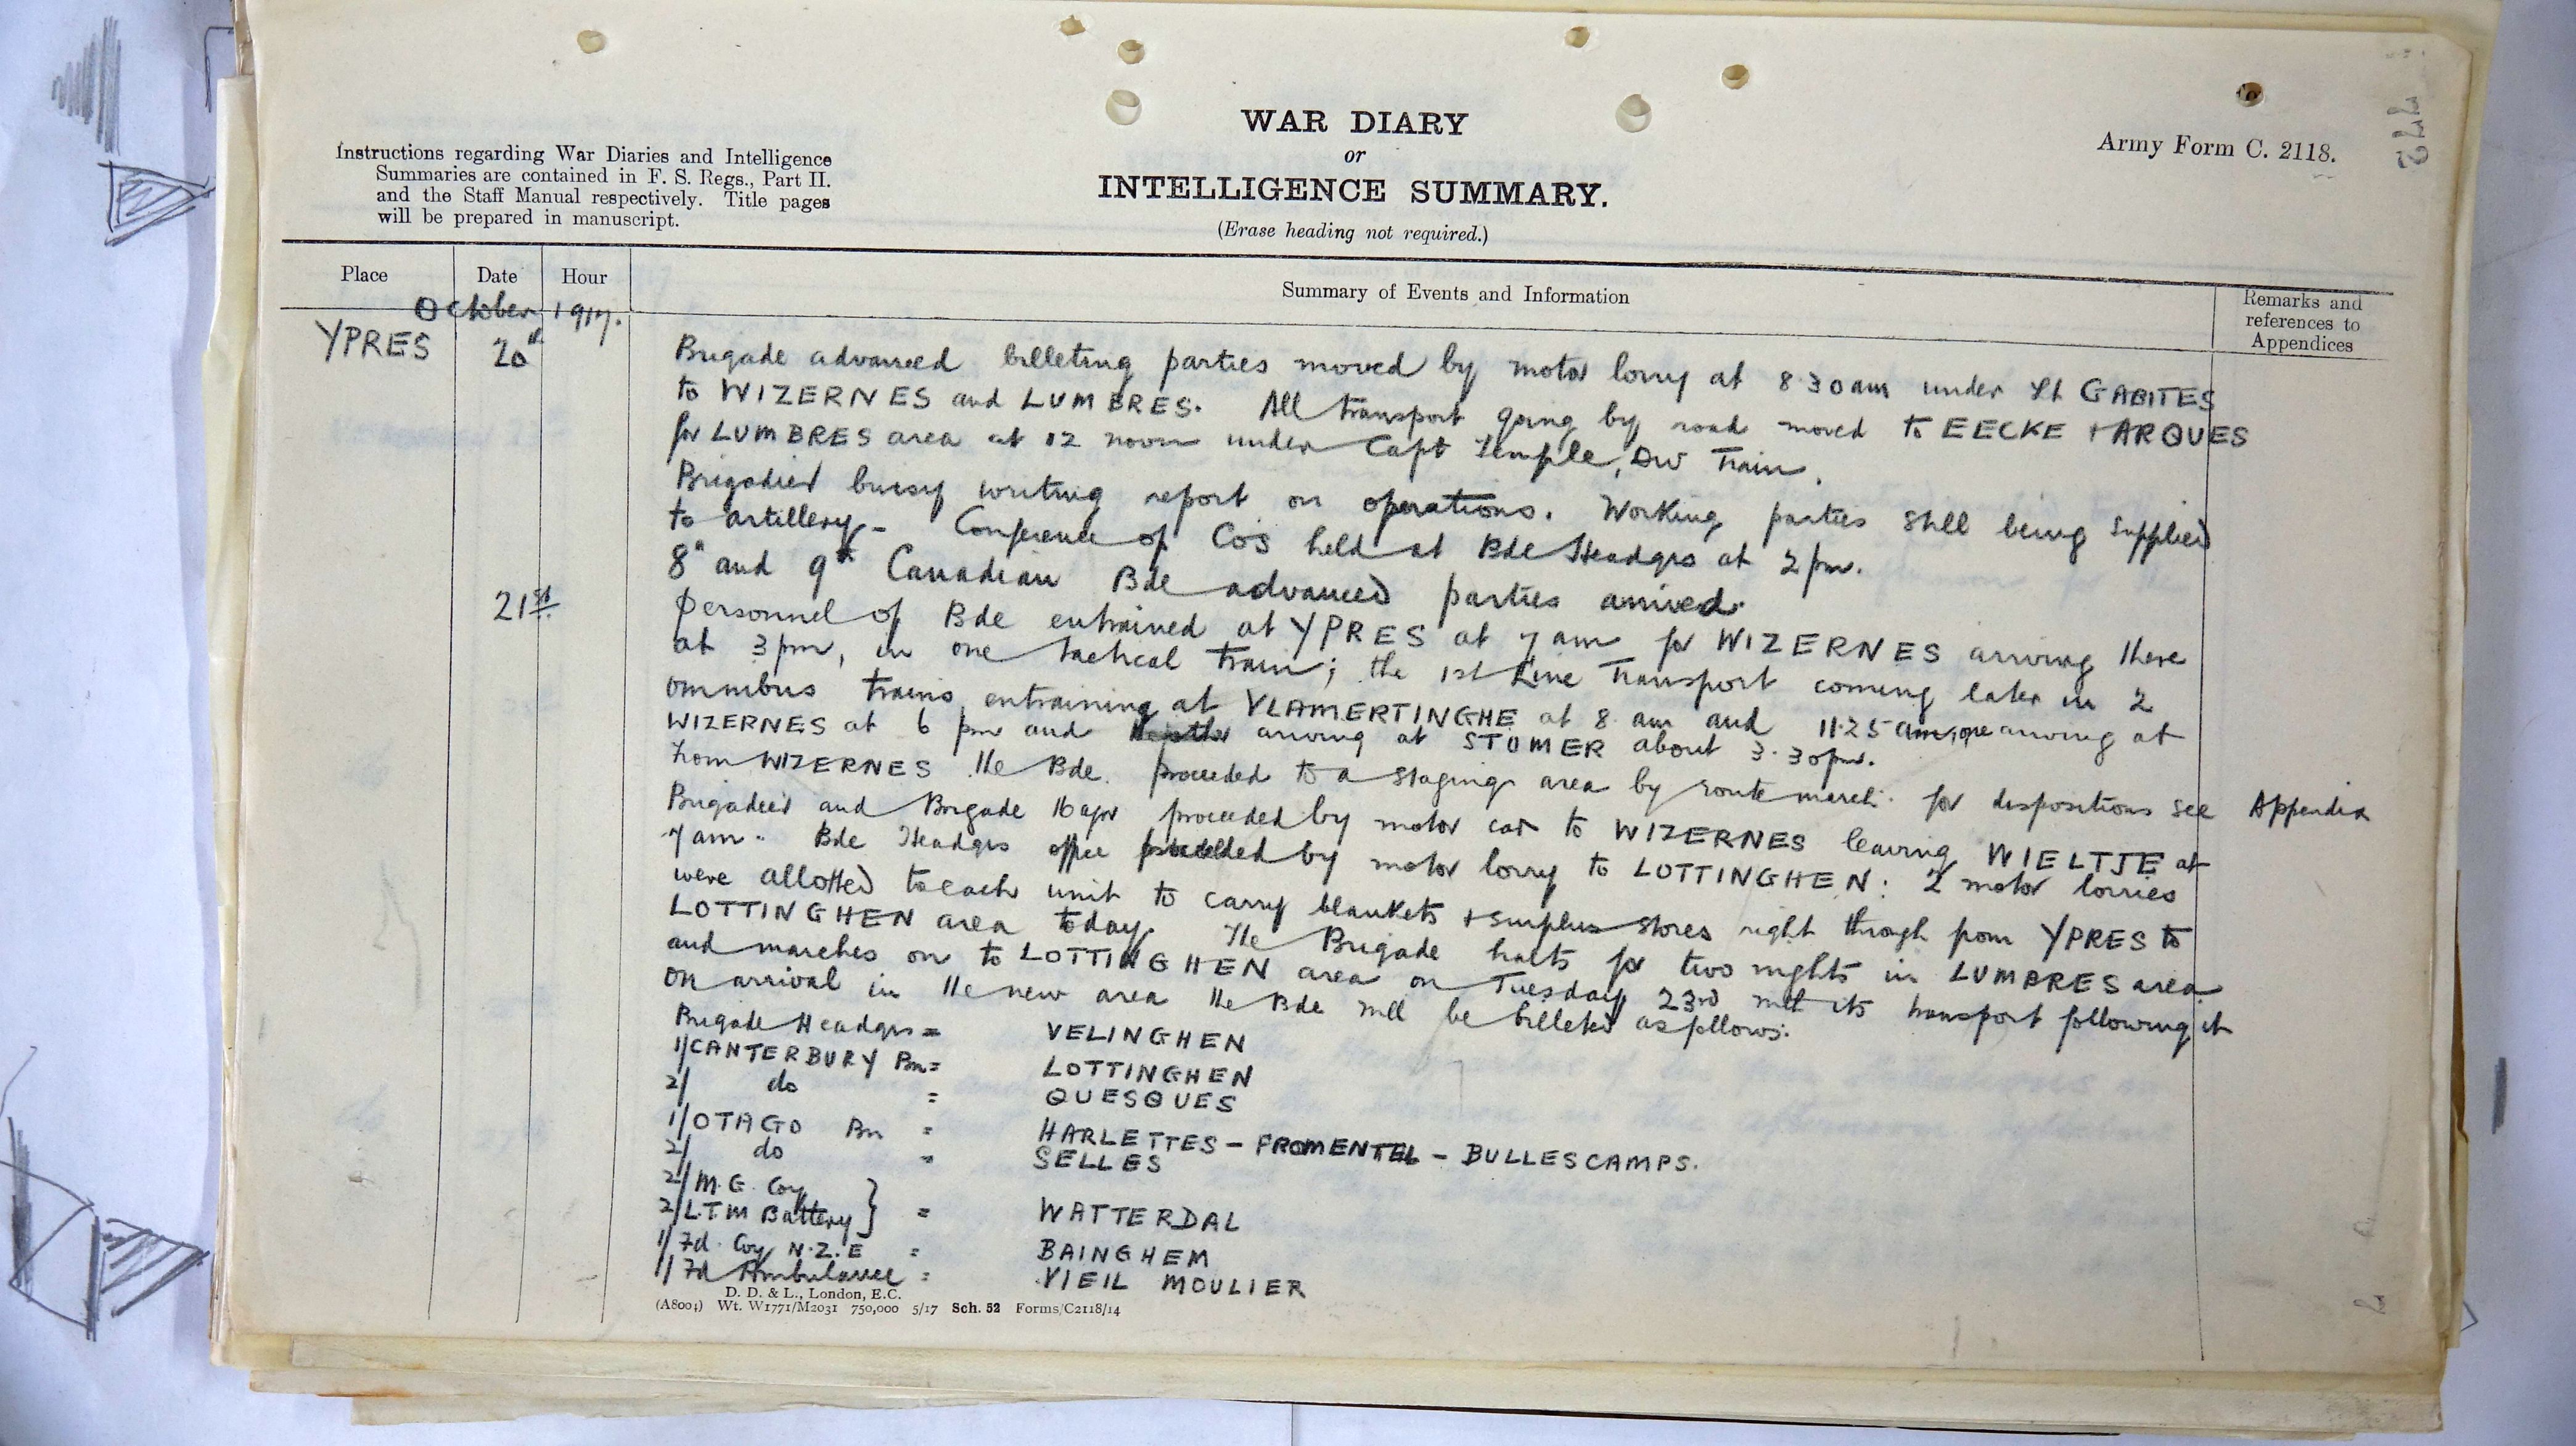 WAR DIARY
or
INTELLIGENCE SUMMARY.
(Erase heading not required.)
Army Form C. 2118.
Instructions regarding War Diaries and Intelligence
Summaries are contained in F. S. Regs., Part II.
and the Staff Manual respectively. Title pages
will be prepared in manuscript.
Place Date Hour Summary of Events and Information Remarks and references to Appendices
October 1917.
YPRES 20th Brigade advanced billeting parties moved by motor lorry at 8 30am under Lt GABITES
to WIZERNES and LUMBRES. All transport going by road moved to EECKE + ARQUES
for LUMBRES area at 12 noon under Capt Temple, Div Train.
Brigadier busy writing report on operations. Working parties still being supplied
to artillery - Conference of COs held at Bde Headqrs at 2 pm.
8th and 9th Canadian Bde advanced parties arrived.
21st Personnel of Bde entrained at YPRES at 7 am for WIZERNES arriving there
at 3pm, in one tactical train; the 1st Line Transport coming later in 2
omnibus trains entraining at VLAMERTINGHE at 8 am and 11.25 am, one arriving at
WIZERNES at 6 pm and arriving at STOMER about 3.30pm.
From WIZERNES the Bde. proceeded to a staging area by route march. for dispositions see Appendix
Brigadier and Brigade Major proceeded by motor car to WIZERNES leaving WIELTJE at
7am. Bde Headqrs office proceeded by motor lorry to LOTTINGHEN: 2 motor lorries
were allotted to each unit to carry blankets + surplus stores right through from YPRES to
LOTTINGHEN area today. The Brigade halts for two nights in LUMBRES area
and marches on to LOTTINGHEN area on Tuesday 23rd with its transport following it
On arrival in the new area the Bde will be billeted as follows:
Brigade Headqrs = VELINGHEN
1/CANTERBURY Bn = LOTTINGHEN
2/ do = QUESQUES
1/OTAGO Bn = HARLETTES - FROMENTEL - BULLESCAMPS.
2/ do = SELLES
2/M.G. Coy
2/L.T.M Battery } = WATTERDAL
1/Fd. Coy N.Z.E = BAINGHEM
1/Fd Ambulance = VIEIL MOULIER
D. D. & L., London, E.C.
(A8004) Wt. W1771/M2031 750,000 5/17 Sch. 52 Forms/C2118/14